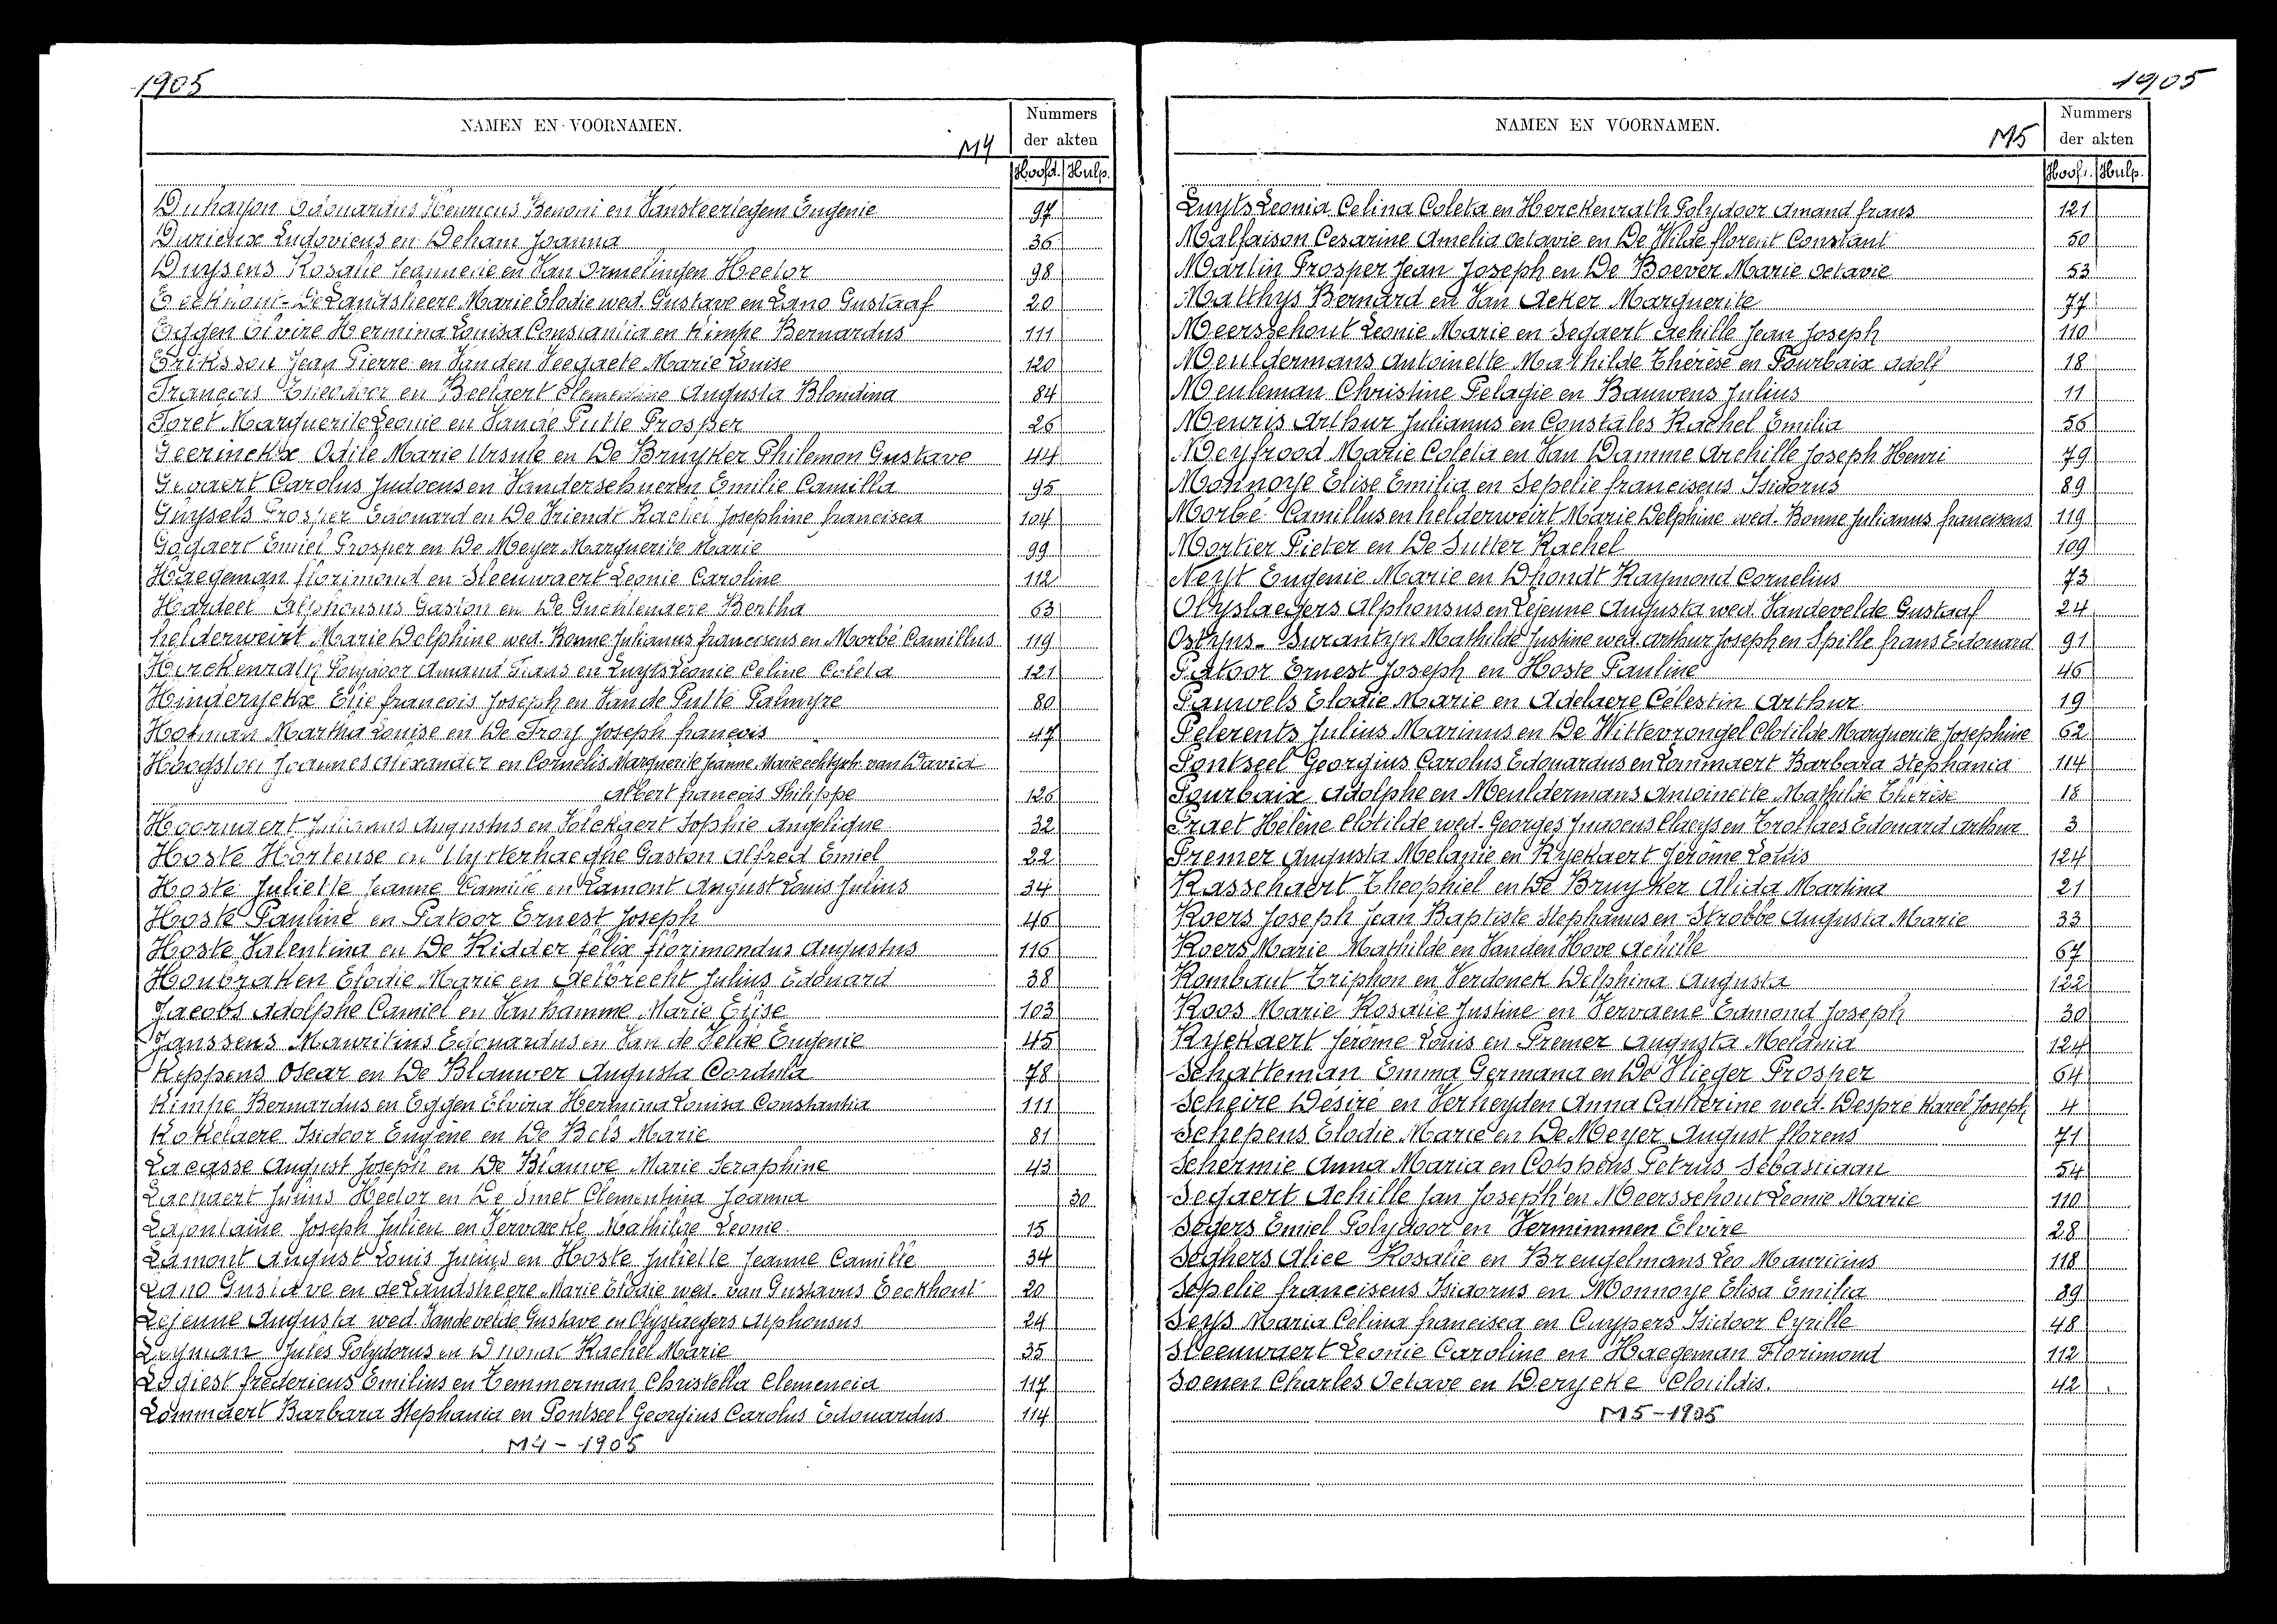 1905
NAMEN EN VOORNAMEN.
M4
Nummers
der akten
Hoofd. Hulp.
Duhayon Edouardus Henricus Benoni en Vansteerlegem Eugenie 97
Durieux Ludovicus en Deham Joanna 36
Duysens Rosalie Jeannette en Van Ormelingen Hector 98
Eeckhout-De Landsheere Marie Elodie wed. Gustave en Lano Gustaaf 20
Eggen Elvire Hermina Louisa Constantia en Kimpe Bernardus 111
Eriksson Jean Pierre en Van den Veegaete Marie Louise 120
François Theodoor en Beelaert Clementine Augusta Blondina 84
Foret Marguerite Leonie en Vande Putte Prosper 26
Geerinckx Odile Marie Ursule en De Bruyker Philemon Gustave 44
Gevaert Carolus Judocus en Vanderschueren Emilie Camilla 95
Guysels Prosper Edouard en De Vriendt Rachel Josephine francisca 104
Gogaert Emiel Prosper en De Meyer Marguerite Marie 99
Haegeman florimond en Sleeuwaert Leonie Caroline 112
Hardeel Alphonsus Gaston en De Guchtenaere Bertha 63
helderweirt Marie Delphine wed. Bonne Julianus franciscus en Morbé Camillus 119
Herckenrath Polydoor Amand Frans en Luyts Leonie Celine Coleta 121
Hinderyckx Elie francois Joseph en Van de Putte Palmyre 80
Hofman Martha Louise en De Troy Joseph françois 47
Hoogstoel Joannes Alexander en Cornelis Marguerite Jeanne Marie echtgsch. van David
Albert francois Philippe 126
Hoornaert Julianus Augustus en Volckaert Sophie Angelique 32
Hoste Hortense en Uytterhaeghe Gaston Alfred Emiel 22
Hoste Juliette Jeanne Camille en Lamont August Louis Julius 34
Hoste Pauline en Patoor Ernest Joseph 46
Hoste Valentina en De Ridder felix florimondus Augustus 116
Houbraken Elodie Marie en Aelbrecht Julius Edouard 38
Jacobs Adolphe Camiel en Vanhamme Marie Elise 103
Janssens Mauritius Edouardus en Van de Velde Eugenie 45
Keppens Oscar en De Blauwer Augusta Cordula 78
Kimpe Bernardus en Eggen Elvira Hermina Louisa Constantia 111
Kokelaere Isidoor Eugène en De Bels Marie 81
Lacasse August Joseph en De Blauwe Marie Seraphine 43
Lachaert Julius Hector en De Smet Clementina Joanna 30
Lafontaine Joseph Julien en Vervaecke Mathilde Leonie. 15
Lamont August Louis Julius en Hoste Juliette Jeanne Camille 34
Lano Gustave en de Landsheere Marie Elodie wed. van Gustavus Eeckhout 20
Lejeune Augusta wed. Vandevelde Gustave en Olyslaegers Alphonsus 24
Leyman Jules Polydorus en Dhondt Rachel Marie 35
Logiest fredericus Emilius en Temmerman Christella Clemencia 117
Lommaert Barbara Stephania en Pontseel Georgius Carolus Edouardus 114
M4 - 1905
1905
NAMEN EN VOORNAMEN.
M5
Nummers
der akten
Hoofd. Hulp.
Luyts Leonia Celina Coleta en Herckenrath Polydoor Amand frans 121
Malfaison Cesarine Amelia Octavie en De Wilde florent Constant 50
Martin Prosper Jean Joseph en De Boever Marie Octavie 53
Matthys Bernard en Van Acker Marguerite 77
Meersschout Leonie Marie en Segaert Achille Jean Joseph 110
Meuldermans Antoinette Mathilde Thérèse en Pourbaix Adolf 18
Meuleman Christine Pelagie en Bauwens Julius 11
Meuris Arthur Julianus en Constales Rachel Emilia 56
Meyfrood Marie Coleta en Van Damme Archille Joseph Henri 79
Monnoye Elise Emilia en Sepelie franciscus Isidorus 89
Morbé Camillus en helderweirt Marie Delphine wed. Bonne Julianus franciscus 119
Mortier Pieter en De Sutter Rachel 109
Neyt Eugenie Marie en Dhondt Raymond Cornelius 73
Olyslaegers Alphonsus en Lejeune Augusta wed. Vandevelde Gustaaf 24
Osthyns-Burankyn Mathilde Justine wed. Arthur Joseph en Spille frans Edouard 91
Patoor Ernest Joseph en Hoste Pauline 46
Pauwels Elodie Marie en Adelaere Célestin Arthur 19
Pelerents Julius Marinus en De Wittevrongel Clotilde Marguerite Josephine 62
Pontseel Georgius Carolus Edouardus en Lommaert Barbara Stephania 114
Pourbaix Adolphe en Meuldermans Antoinette Mathilde Thérèse 18
Praet Hélène Clotilde wed. Georges Judocus Claeys en Trollaes Edouard Arthur 3
Premer Augusta Melanie en Ryckaert Jérôme Louis 124
Rasschaert Theophiel en De Bruyker Alida Martina 21
Roers Joseph Jean Baptiste Stephanus en Strobbe Augusta Marie 33
Roers Marie Mathilde en Vanden Hove Achille 67
Rombaut Triphon en Verdonck Delphina Augusta 122
Roos Marie Rosalie Justine en Vervaene Edmond Joseph 30
Ryckaert Jérôme Louis en Premer Augusta Melania 124
Schatteman Emma Germana en De Vlieger Prosper 64
Scheire Désiré en Verheyden Anna Catherine wed. Despré Karel Joseph 4
Schepens Elodie Marie en De Meyer August florens 71
Schermie Anna Maria en Coppens Petrus Sebastiaan 54
Segaert Achille Jan Joseph en Meersschout Leonie Marie 110
Segers Emiel Polydoor en Vermimmen Elvire 28
Seghers Alice Rosalie en Breugelmans Leo Mauricius 118
Sepelie franciscus Isidorus en Monnoye Elisa Emilia 89
Seys Maria Célina francisca en Cuypers Isidoor Cyrille 48
Sleeuwaert Leonie Caroline en Haegeman Florimond 112
Soenen Charles Octave en Derycke Clotildis. 42
M5-1905